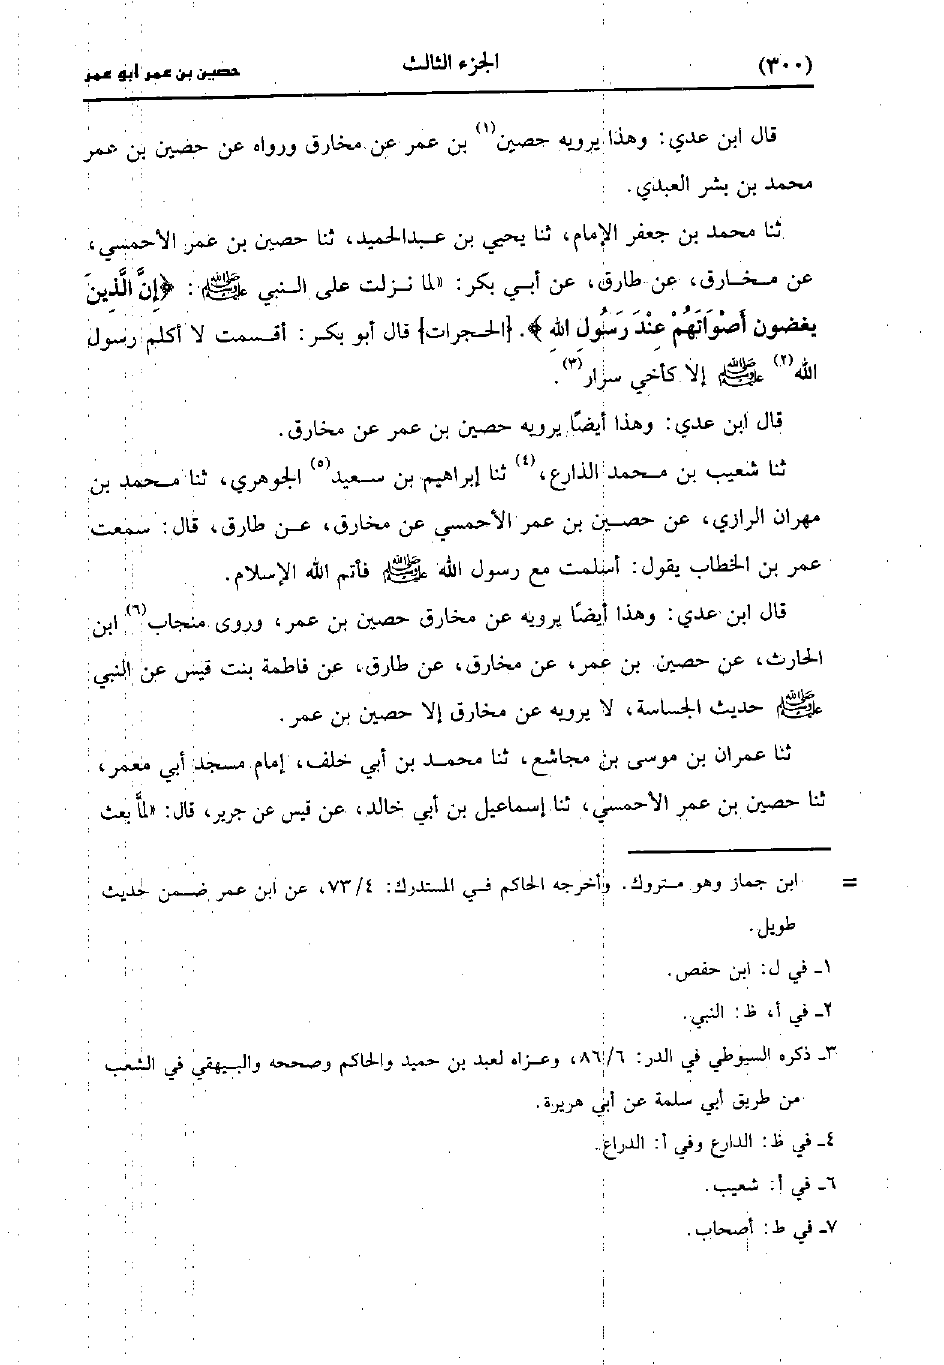 (٣٠٠) الجزء الثالث حصين بن عمر أبو عمر
قال ابن عدي: وهذا يرويه حصين(١) بن عمر عن مخارق ورواه عن حضين بن عمر
محمد بن بشر العبدي.
ثنا محمد بن جعفر الإمام، ثنا يحيي بن عبدالحميد، ثنا حصين بن عمر الأحمسي،
عن مخارق، عن طارق، عن أبي بكر: «لما نزلت على النبي ﷺ: ﴿إِنَّ الَّذِينَ
يغضون أَصْوَاتَهُمْ عِنْدَ رَسُولِ اللهِ﴾. [الحجرات] قال أبو بكر: أقسمت لا أكلم رسول
الله(٢) ﷺ إلا كأخي سرار(٣).
قال ابن عدي: وهذا أيضًا يرويه حصين بن عمر عن مخارق.
ثنا شعيب بن محمد الذارع،(٤) ثنا إبراهيم بن سعيد(٥) الجوهري، ثنا محمد بن
مهران الرازي، عن حصين بن عمر الأحمسي عن مخارق، عن طارق، قال: سمعت
عمر بن الخطاب يقول: أسلمت مع رسول الله ﷺ فأتم الله الإسلام.
قال ابن عدي: وهذا أيضًا يرويه عن مخارق حصين بن عمر، وروى منجاب(٦) ابن
الحارث، عن حصين بن عمر، عن مخارق، عن طارق، عن فاطمة بنت قيس عن النبي
ﷺ حديث الجساسة، لا يرويه عن مخارق إلا حصين بن عمر.
ثنا عمران بن موسى بن مجاشع، ثنا محمد بن أبي خلف، إمام مسجد أبي معمر،
ثنا حصين بن عمر الأحمسي، ثنا إسماعيل بن أبي خالد، عن قيس عن جرير، قال: «لمَّا بعث
= ابن جماز وهو متروك. وأخرجه الحاكم في المستدرك: ٧٣/٤، عن ابن عمر ضمن حديث
طويل.
١ـ في ل: ابن حفص.
٢ـ في أ، ظ: النبي.
٣ـ ذكره السيوطي في الدر: ٨٦/٦، وعزاه لعبد بن حميد والحاكم وصححه والبيهقي في الشعب
من طريق أبي سلمة عن أبي هريرة.
٤ـ في ظ: الدارع وفي أ: الدراع.
٦ـ في أ: شعيب.
٧ـ في ط: أصحاب.